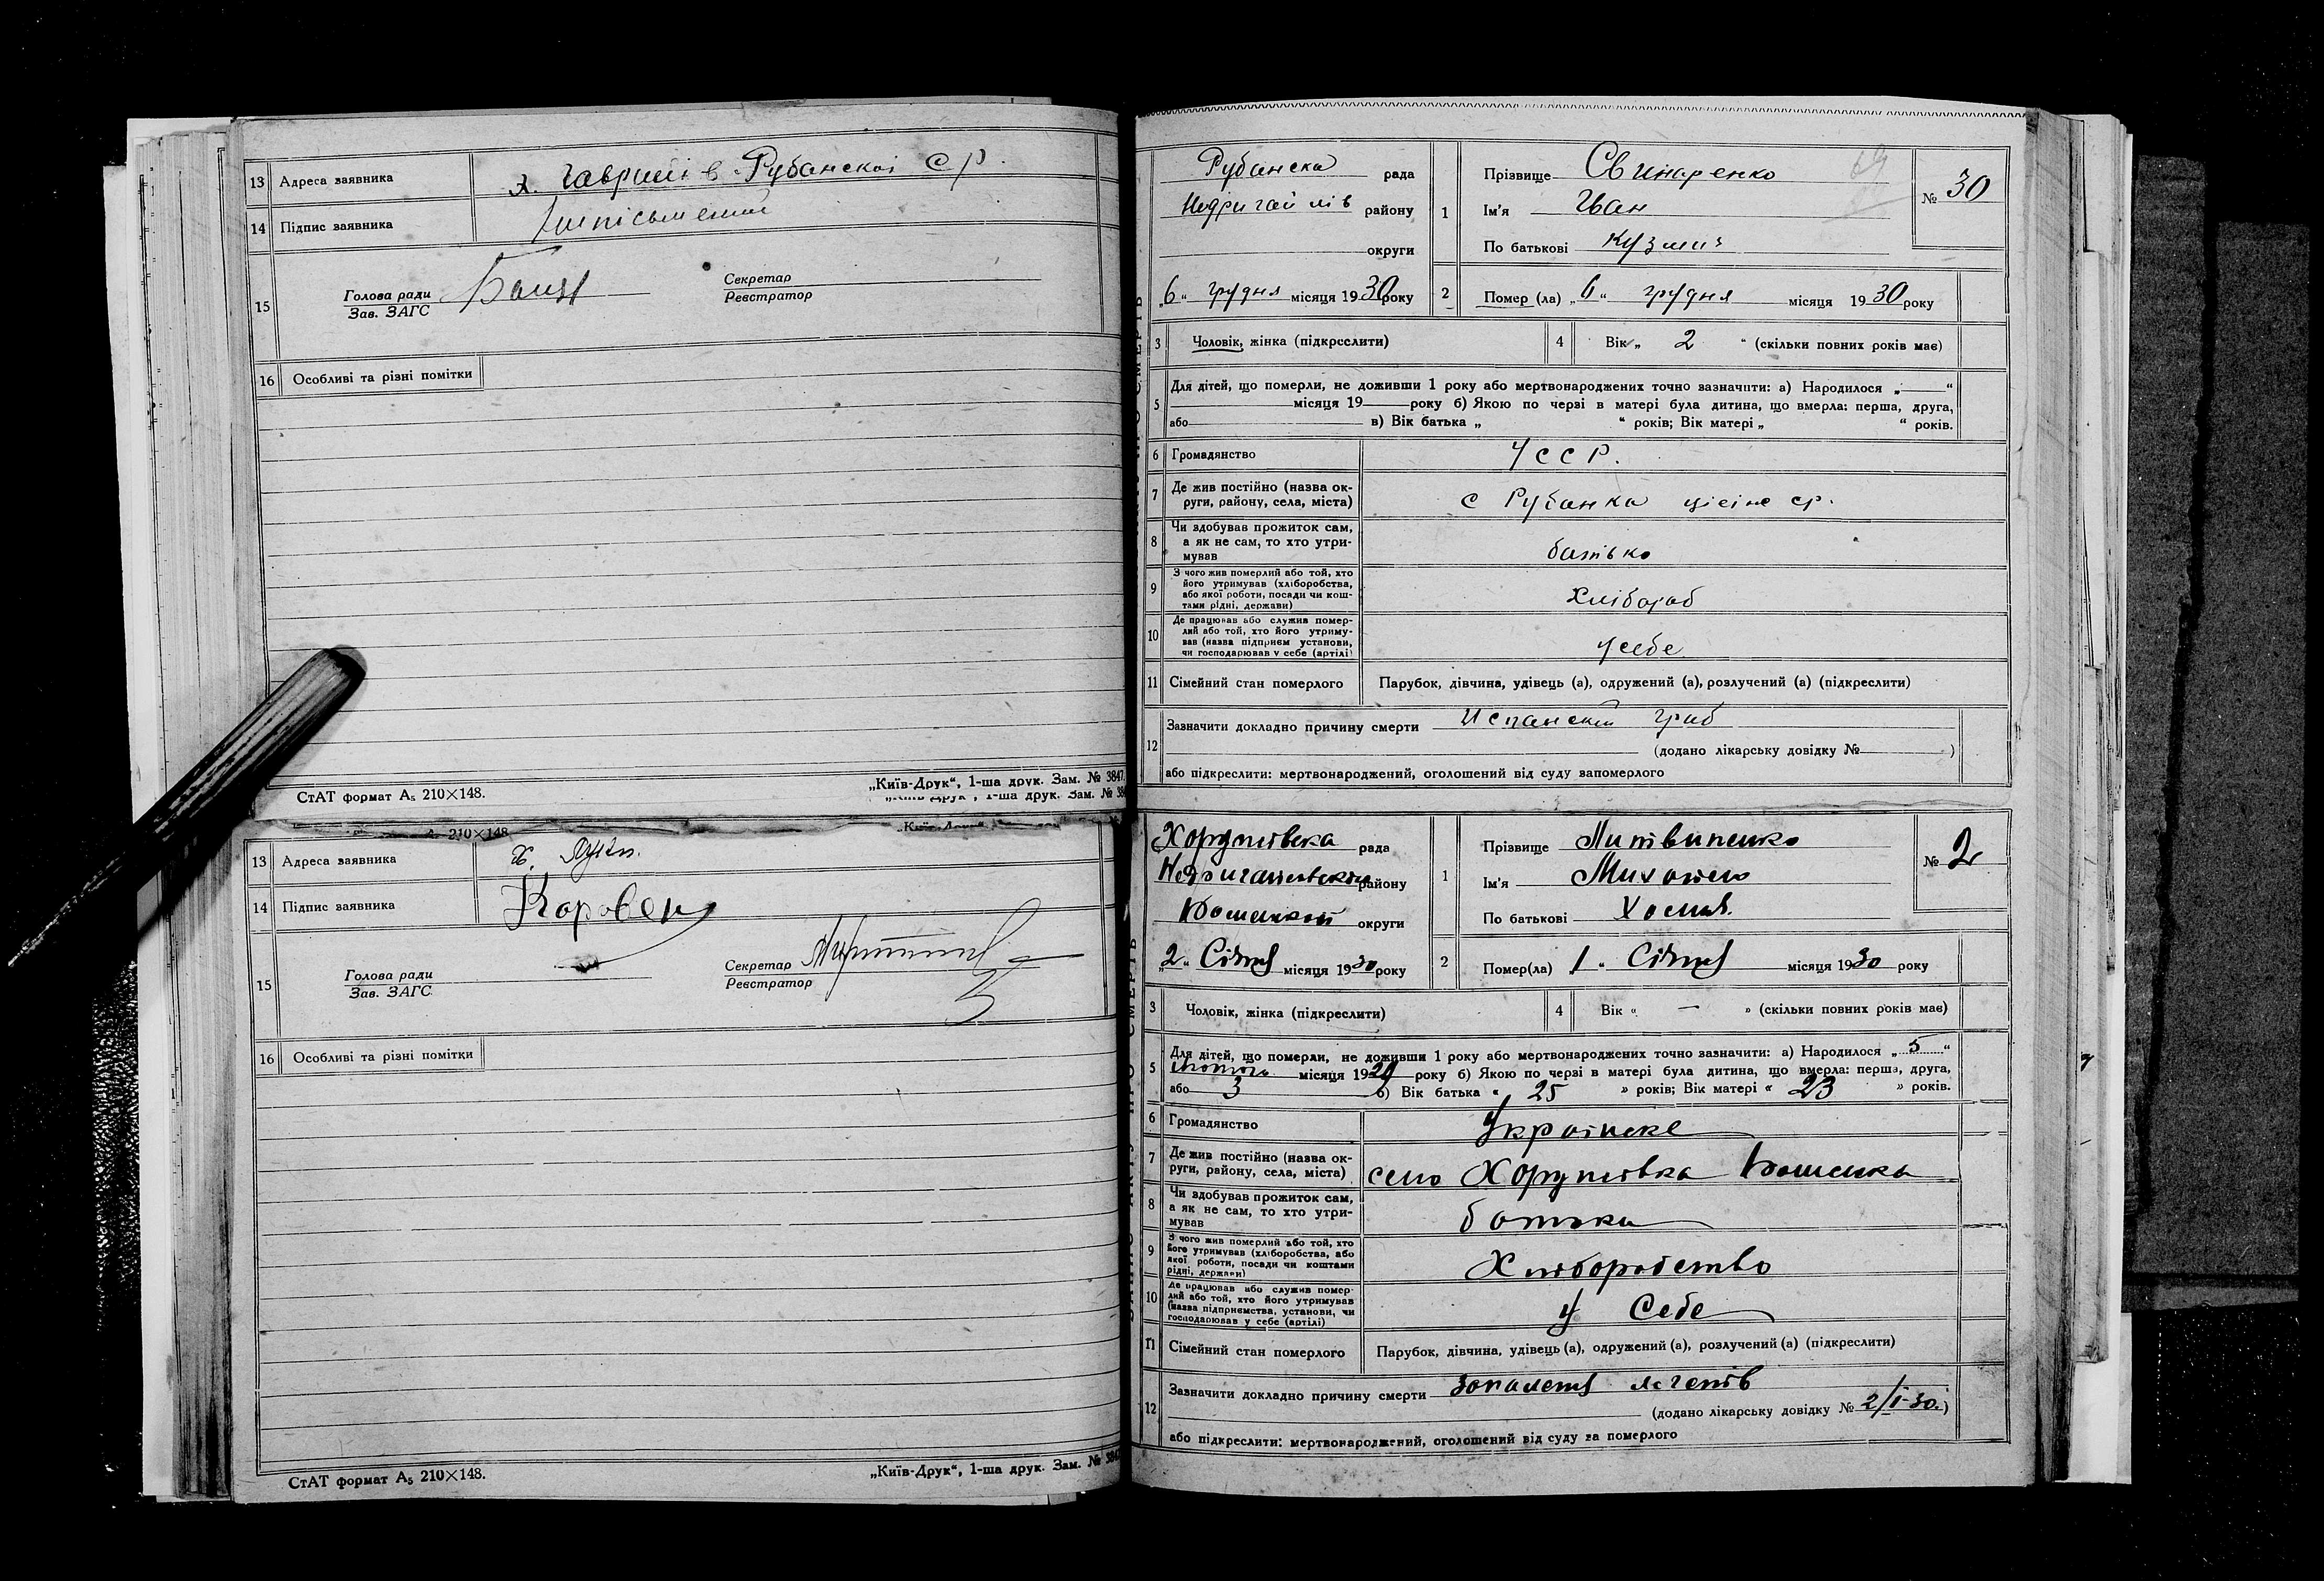 13 Адреса заявника х. Гаврилів Рубанскої с р.
14 Підпис заявника
15 Голова ради
Зав. ЗАГС
Секретар
Реєстратор
16 Особливі та різні помітки
СтАТ формат А₅ 210×148. „Київ-Друк“, 1-ша друк. Зам. № 3847.
13 Адреса заявника х.
14 Підпис заявника
15 Голова ради
Зав. ЗАГС
Секретар
Реєстратор
16 Особливі та різні помітки
СтАТ формат А₅ 210×148. „Київ-Друк“, 1-ша друк. Зам. № 3847
Рубанска рада
Недригайлів району
округи
„6“ грудня місяця 1930 року
1 Прізвище Свинаренко
Ім'я Іван
По батькові Кузмич
№ 30
2 Помер (ла) „6“ грудня місяця 1930 року
3 Чоловік, жінка (підкреслити)
4 Вік „ 2 “ (скільки повних років має)
5 Для дітей, що померли, не доживши 1 року або мертвонароджених точно зазначити: а) Народилося „ “
місяця 19 року б) Якою по черзі в матері була дитина, що вмерла: перша, друга,
або в) Вік батька „ “ років; Вік матері „ “ років.
6 Громадянство УССР.
7 Де жив постійно (назва ок-
руги, району, села, міста) с Рубанка ср.
8 Чи здобував прожиток сам,
а як не сам, то хто утри-
мував батько
9 З чого жив померлий або той, хто
його утримував (хліборобства,
або якої роботи, посади чи кош-
тами рідні, держави) хлібороб
10 Де працював або служив помер-
лий або той, хто його утриму-
вав (назва підприєм установи,
чи господарював у себе (артілі) у себе
11 Сімейний стан померлого Парубок, дівчина, удівець (а), одружений (а), розлучений (а) (підкреслити)
12 Зазначити докладно причину смерти Испанский гриб
(додано лікарську довідку № )
або підкреслити: мертвонароджений, оголошений від суду запомерлого
Хорунівка рада
Недригайлівського району
Роменкой округи
„2“ Січня місяця 1930 року
1 Прізвище Литвиненко
Ім'я Михайло
По батькові
№ 2
2 Помер(ла) „1“ Січня місяця 1930 року
3 Чоловік, жінка (підкреслити)
4 Вік « — » (скільки повних років має)
5 Для дітей, що померли, не доживши 1 року або мертвонароджених точно зазначити: а) Народилося „5“
лютого місяця 1929 року б) Якою по черзі в матері була дитина, що вмерла: перша, друга,
або 3 в) Вік батька « 25 » років; Вік матері « 23 » років.
6 Громадянство Українске
7 Де жив постійно (назва ок-
руги, району, села, міста) село Хорунівка Роменка
8 Чи здобував прожиток сам,
а як не сам, то хто утри-
мував батька
9 З чого жив померлий або той, хто
його утримував (хліборобства, або
якої роботи, посади чи коштами
рідні, держави) Хліборобство
10 Де працював або служив помер-
лий або той, хто його утримував
(назва підприємства, установи, чи
господарював у себе (артілі) у себе
11 Сімейний стан померлого Парубок, дівчина, удівець (а), одружений (а), розлучений (а) (підкреслити)
12 Зазначити докладно причину смерти запаленя легенів
(додано лікарську довідку № 2/I-30.)
або підкреслити: мертвонароджений, оголошений від суду за померлого